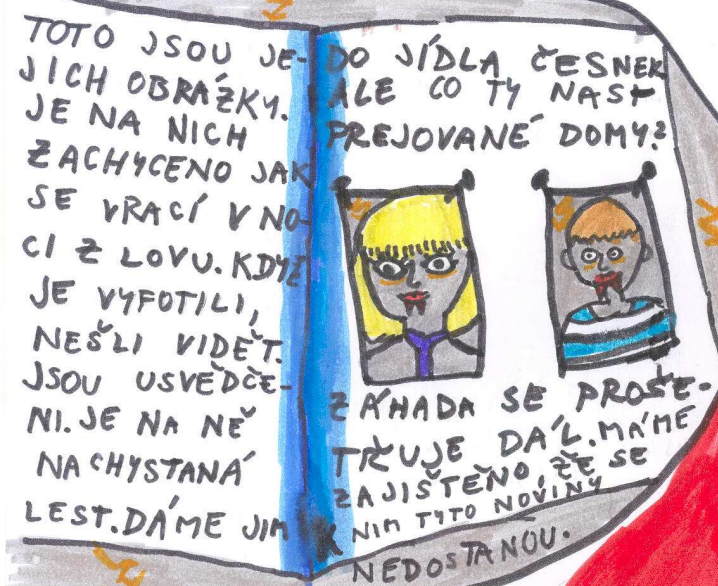 TOTO JSOU JE-
JICH OBRÁZKY.
JE NA NICH
ZACHYCENO JAK
SE VRACÍ V NO-
CI Z LOVU. KDYŽ
JE VYFOTILI,
NEŠLI VIDĚT.
JSOU USVĚDČE-
NI. JE NA NĚ
NACHYSTANÁ
LEST. DÁME JIM
DO JÍDLA ČESNEK
ALE CO TY NAST
PREJOVANÉ DOMY?
ZÁHADA SE PROŠE-
TŘUJE DÁL. MÁME
ZAJIŠTĚNO, ŽE SE
K NIM TYTO NOVINY
NEDOSTANOU.